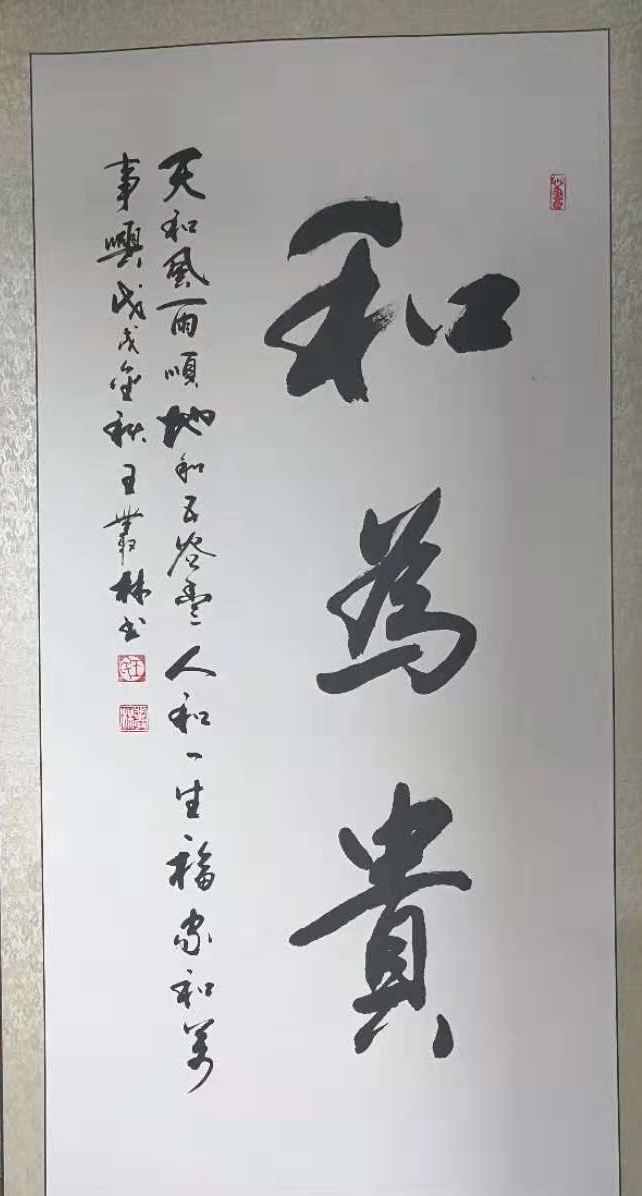 和為貴
天和風雨順地和五谷豐人和一生福家和萬
事興戊戌金秋王叢林書